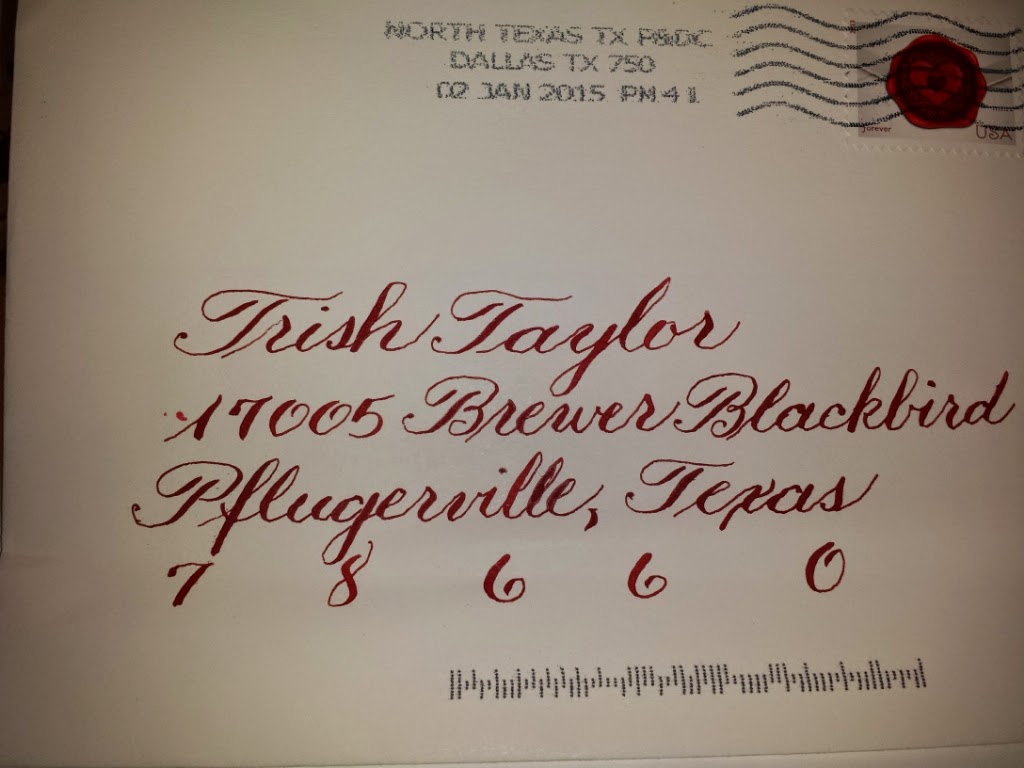 NORTH TEXAS TX P&DC
DALLAS TX 750
02 JAN 2015 PM 4 L
forever
USA
Trish Taylor
17005 Brewer Blackbird
Pflugerville, Texas
7 8 6 6 0